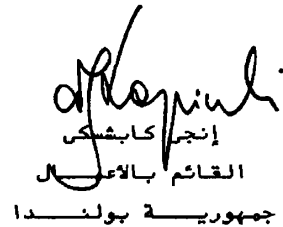 إنجي كابشسكي
القائم بالأعمال
جمهورية بولندا